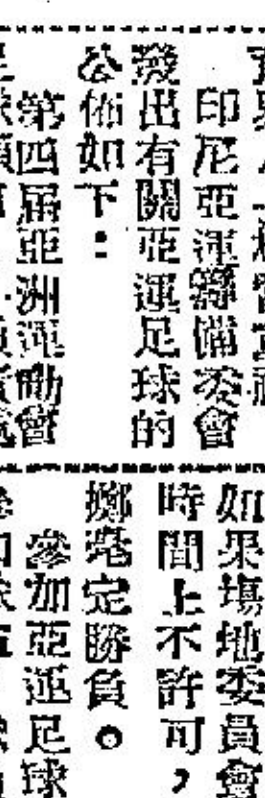 印尼亞運籌備委會
發出有關亞運足球的
公佈如下：
第四屆亞洲運動會
如果場地委員會
時間上不許可，
擲毫定勝負。
參加亞運足球